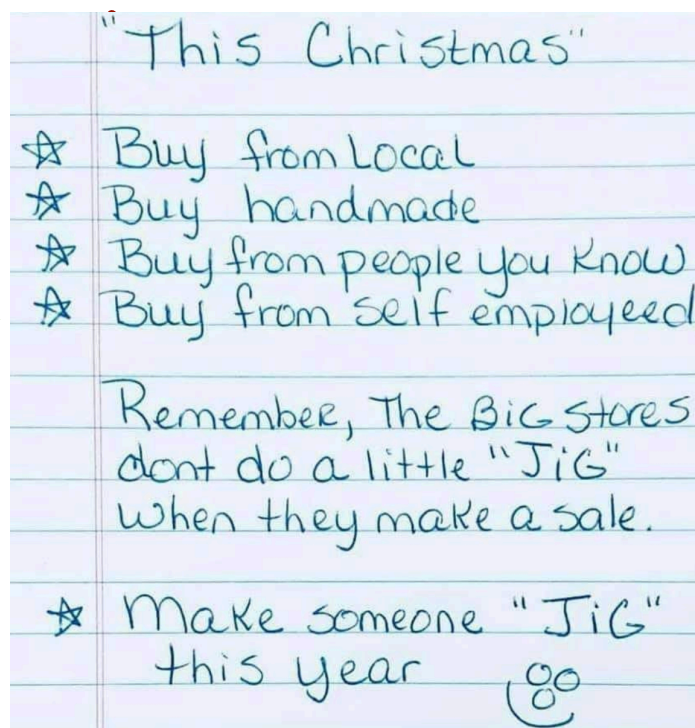 "This Christmas"
Buy from Local
Buy handmade
Buy from people you know
Buy from self employeed
Remember, The BiG stores
dont do a little "JiG"
when they make a sale.
Make someone "JiG"
this year